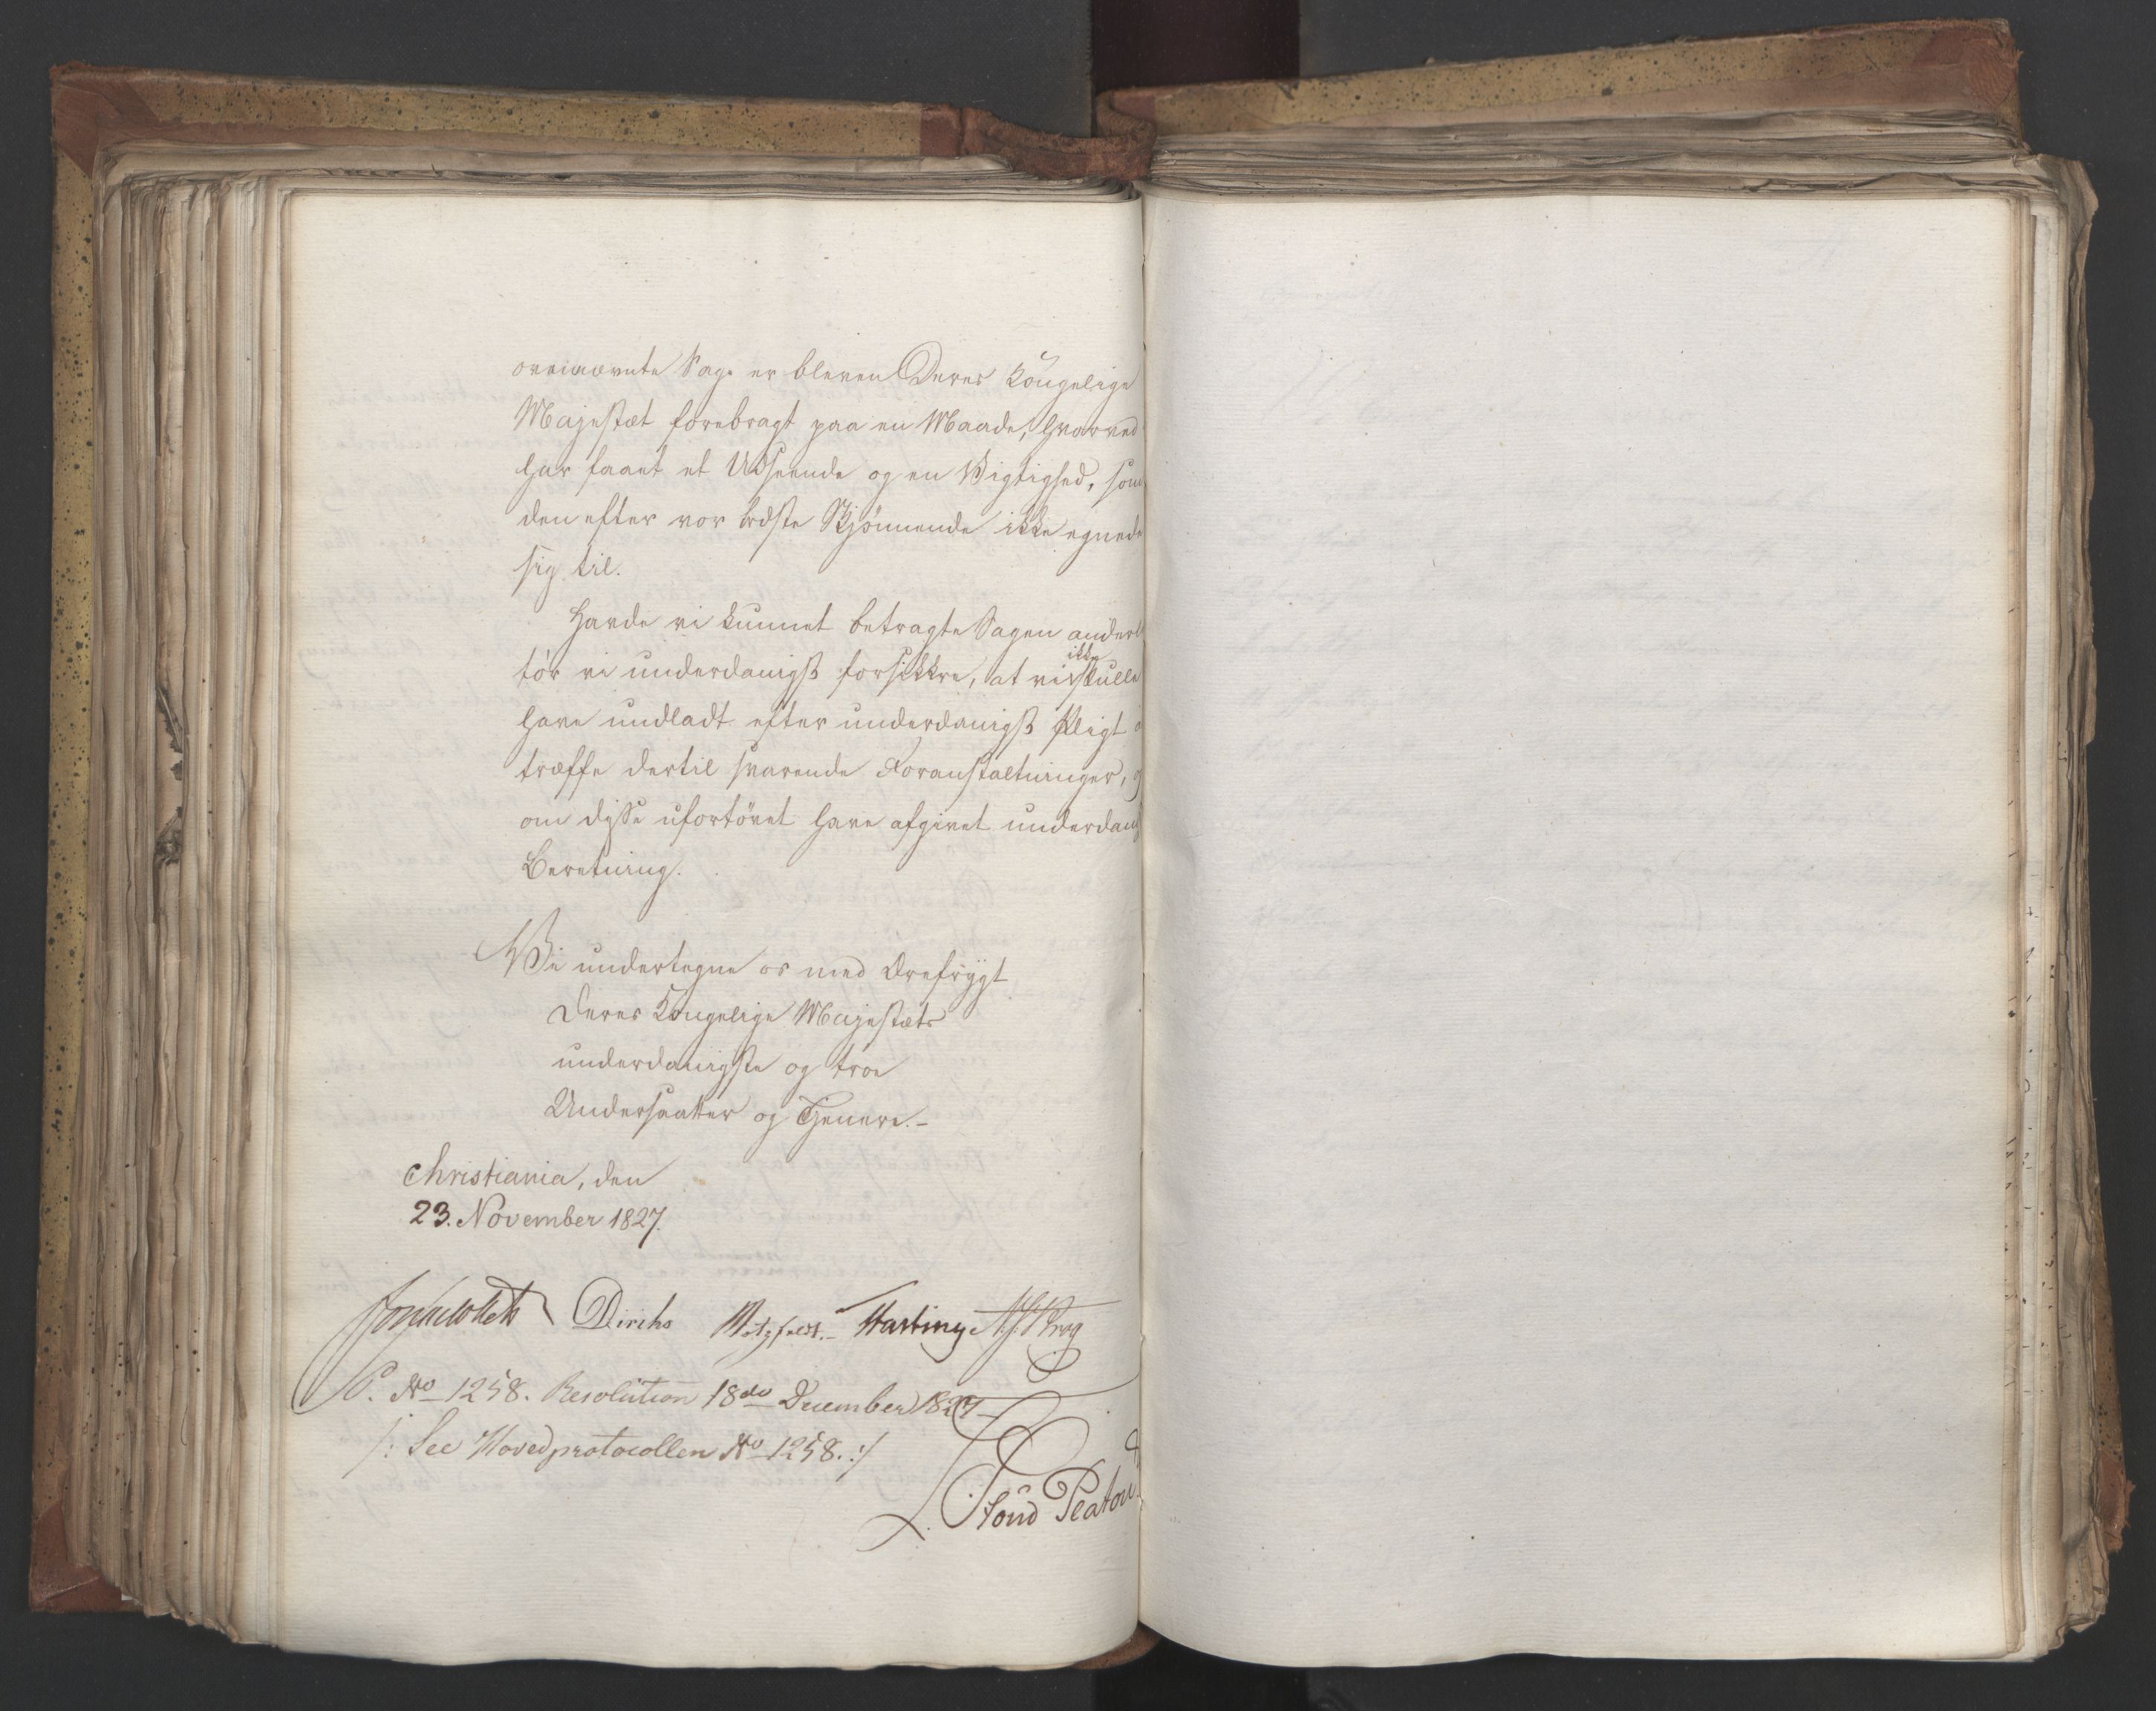 ovennævnte Sag er bleven Deres Kongelige
Majestæt forebragt paa en Maade, hvorved
har faaet et Udseende og en Vigtighed, som
den efter vor bedste Skjönnende ikke egnede
sig til.
Havde vi kunnet betragte Sagen anderl
ikke
tör vi underdanigst forsikkre, at vi skulle
have undladt efter underdanigst Pligt
træffe dertil svarende Foranstaltninger,
om disse ufortövet have afgivet underdanig
Beretning.
Vi undertegne os med Ærefrygt
Deres Kongelige Majestæts
underdanigste og troe
Undersaatter og Tjenere.-
Christiania, den
23. November 1827.
Diriks Motzfeldt.- N. J. Krog
P. No 1258. Resolution 18de December 1827
/: See Hovedprotocollen No 1258. :/
Stoud Platou